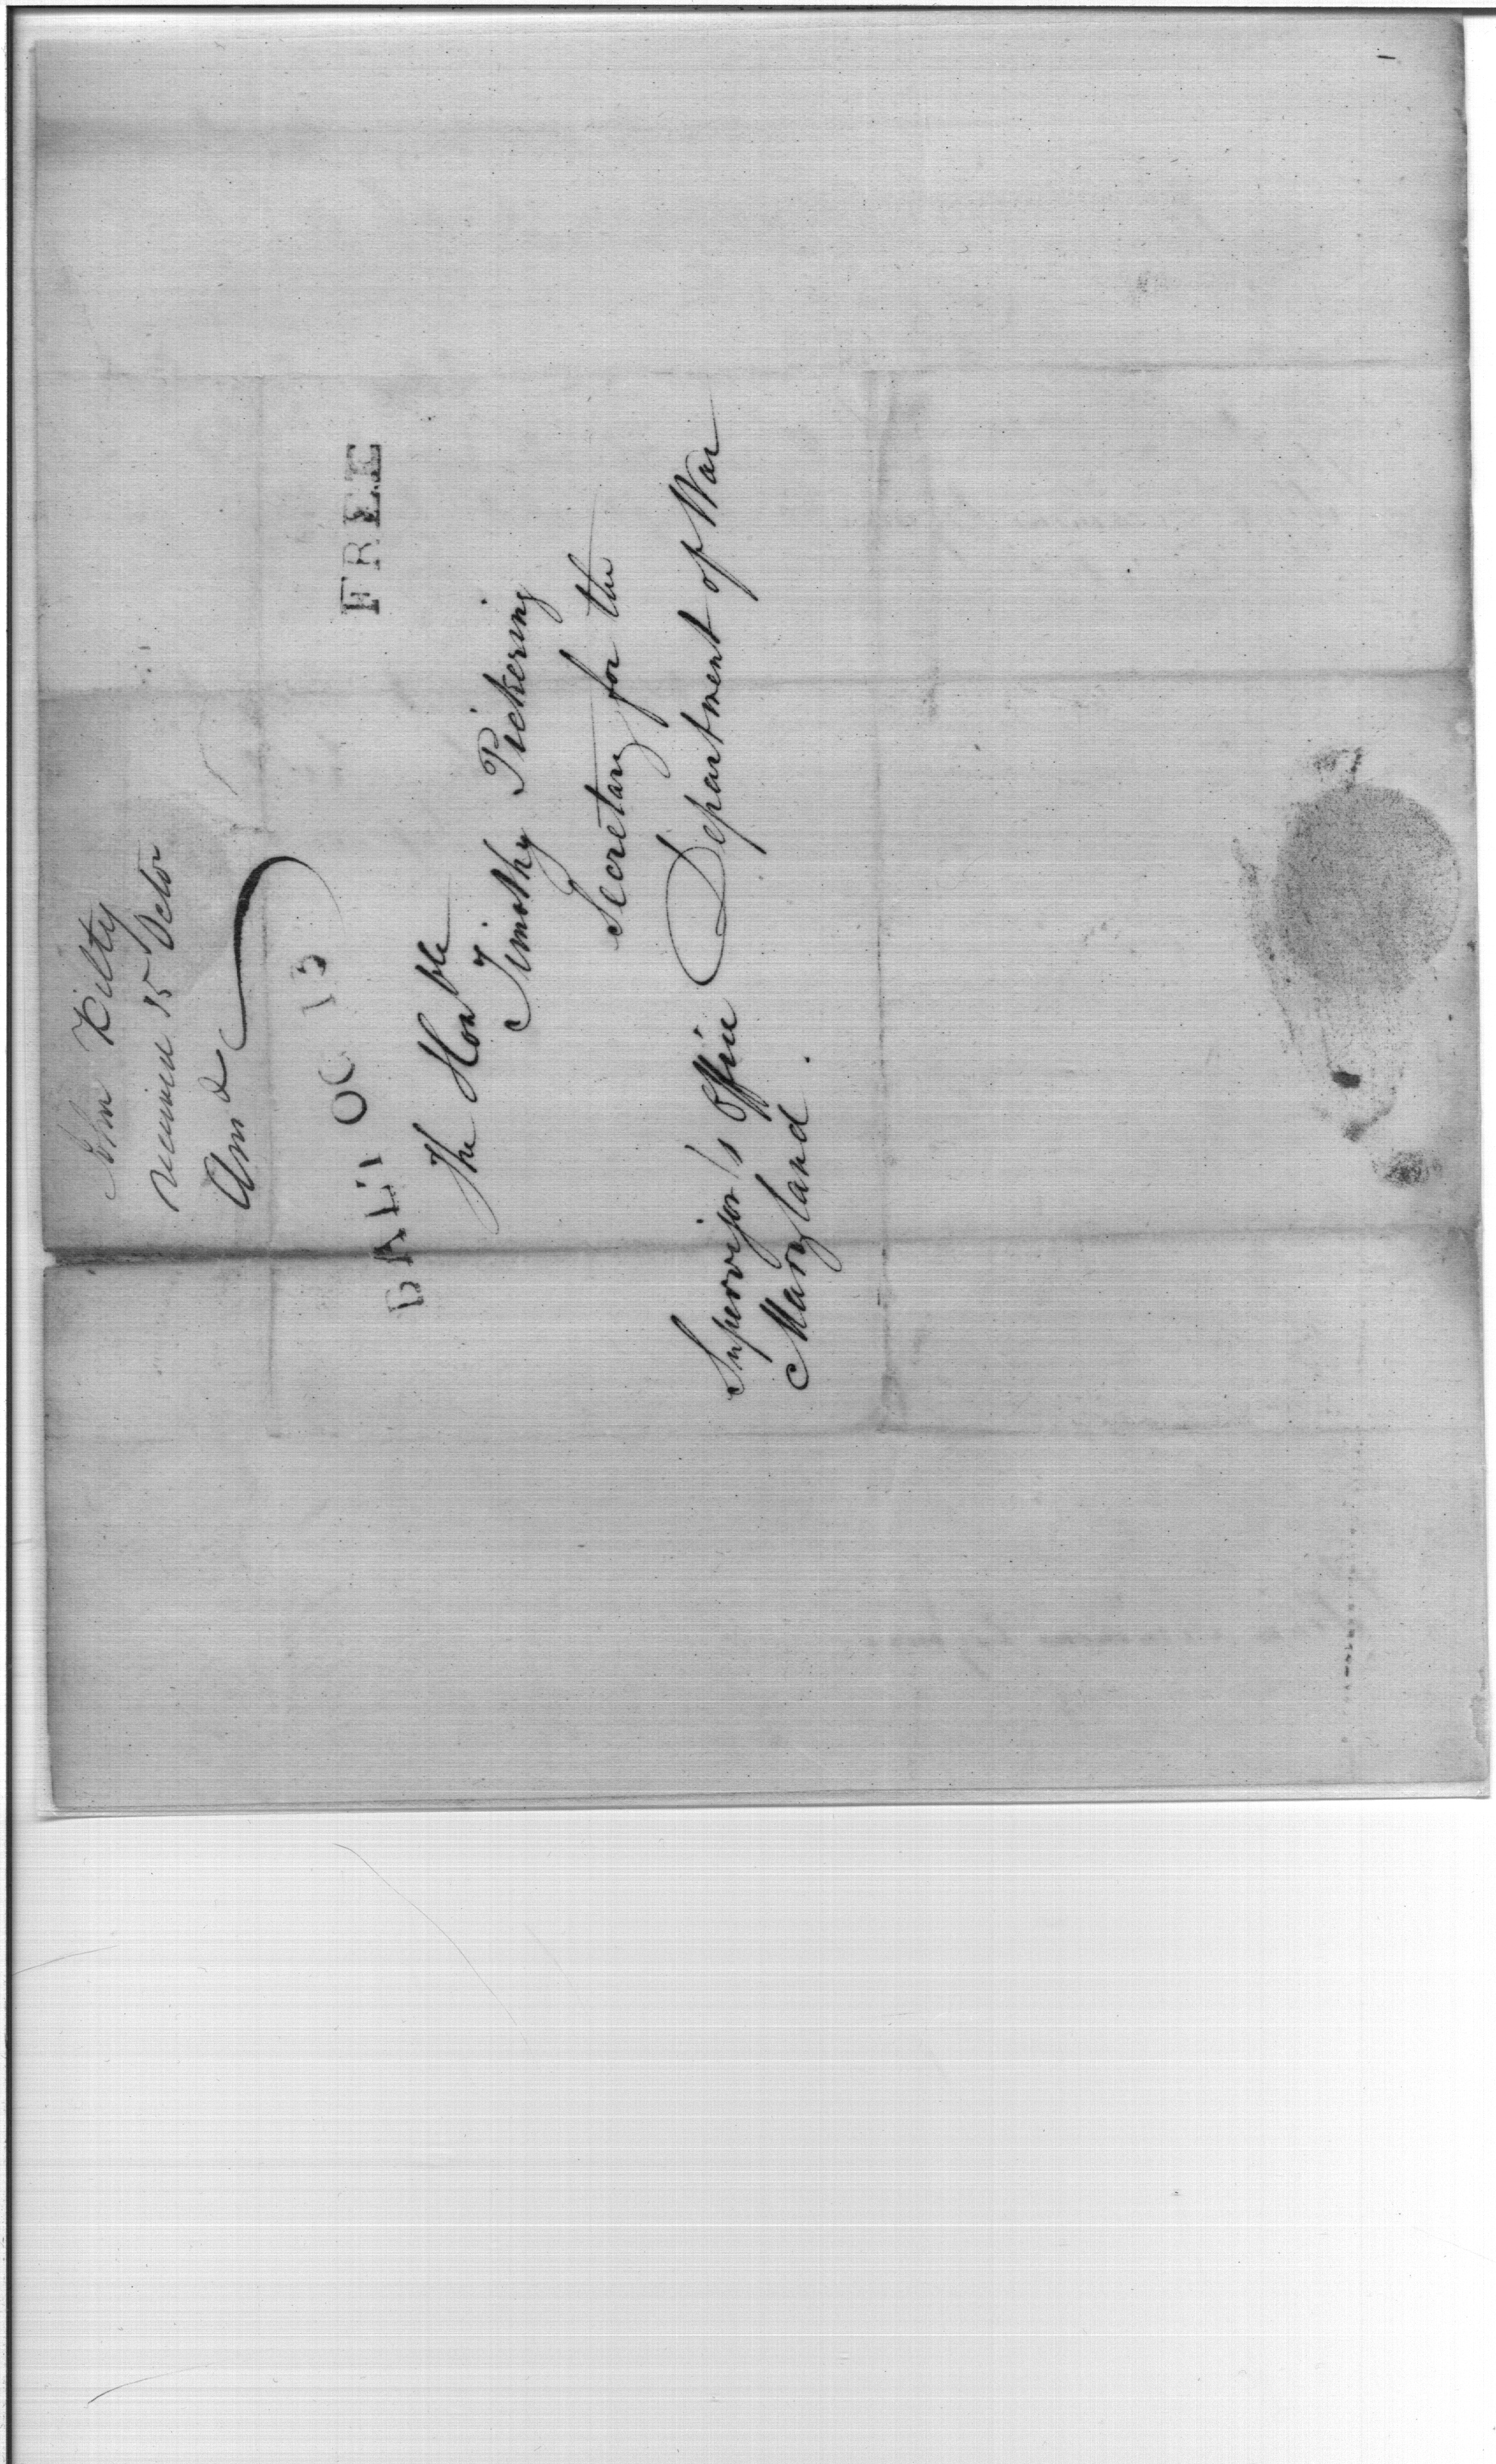 John Kilty
received 15 Octor
Ansd
BALT OC 13
FREE
The Honble
Timothy Pickering
Secretary for the
Department of War
Supervisor's Office
Maryland.